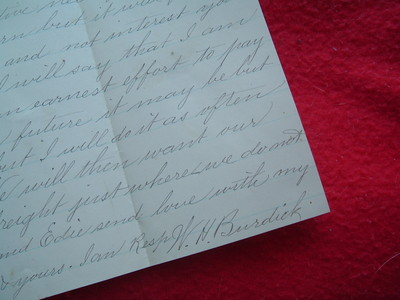 but it was
and not interest you
I will say that I am
an earnest effort to pay
future it may be but
but I will do it as often
will then want our
freight just where we do not.
and Edie send love with my
yours. I am Resp. W. H. Burdick.